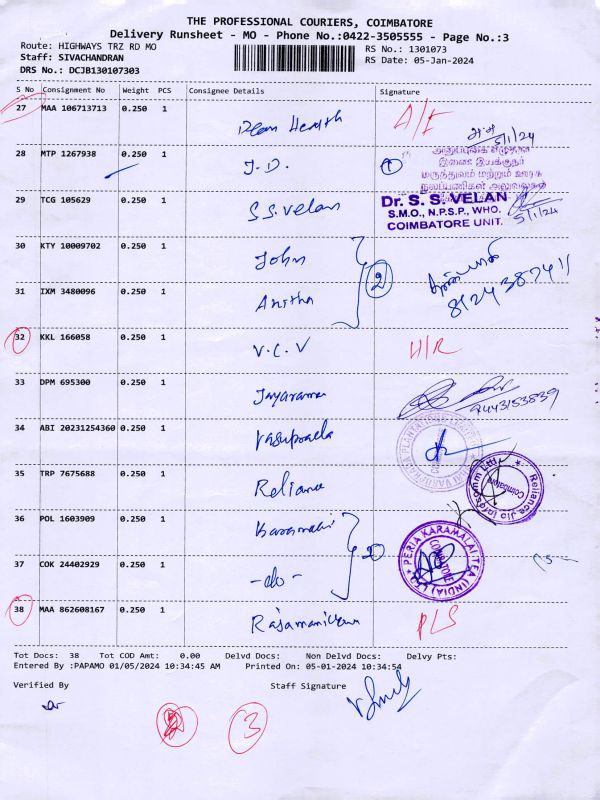 THE PROFESSIONAL COURIERS, COIMBATORE
Delivery Runsheet - MO - Phone No.:0422-3505555 - Page No.:3
Route: HIGHWAYS TRZ RD MO
RS No.: 1301073
Staff: SIVACHANDRAN
RS Date: 05-Jan-2024
DRS No.: DCJB130107303
S No Consignment No Weight PCS Consignee Details Signature
27 MAA 106713713 0.250 1 Dean Health A/F
5/1/24
28 MTP 1267938 0.250 1 J.D. 1
அனுப்புகை எழுதுனர்
இணை இயக்குநர்
மருத்துவம் மற்றும் ஊரக
நலப்பணிகள் அலுவலகம்
29 TCG 105629 0.250 1 S.S. Velan
Dr. S. S. VELAN
S.M.O., N.P.S.P., WHO.
COIMBATORE UNIT.
5/1/24
30 KTY 10009702 0.250 1 John
2
31 IXM 3480096 0.250 1 Anitha
32 KKL 166058 0.250 1 V.C.V H/R
33 DPM 695300 0.250 1 Jayarama
9443153839
34 ABI 20231254360 0.250 1
35 TRP 7675688 0.250 1 Reliance
Reliance Jio Infocomm Ltd
Coimbatore
36 POL 1603909 0.250 1
2
PERIA KARAMALAI TEA (INDIA) LTD
COIMBATORE
37 COK 24402929 0.250 1 -do-
38 MAA 862608167 0.250 1 P/S
Tot Docs: 38 Tot COD Amt: 0.00 Delvd Docs: Non Delvd Docs: Delvy Pts:
Entered By :PAPAMO 01/05/2024 10:34:45 AM Printed On: 05-01-2024 10:34:54
Verified By Staff Signature
3